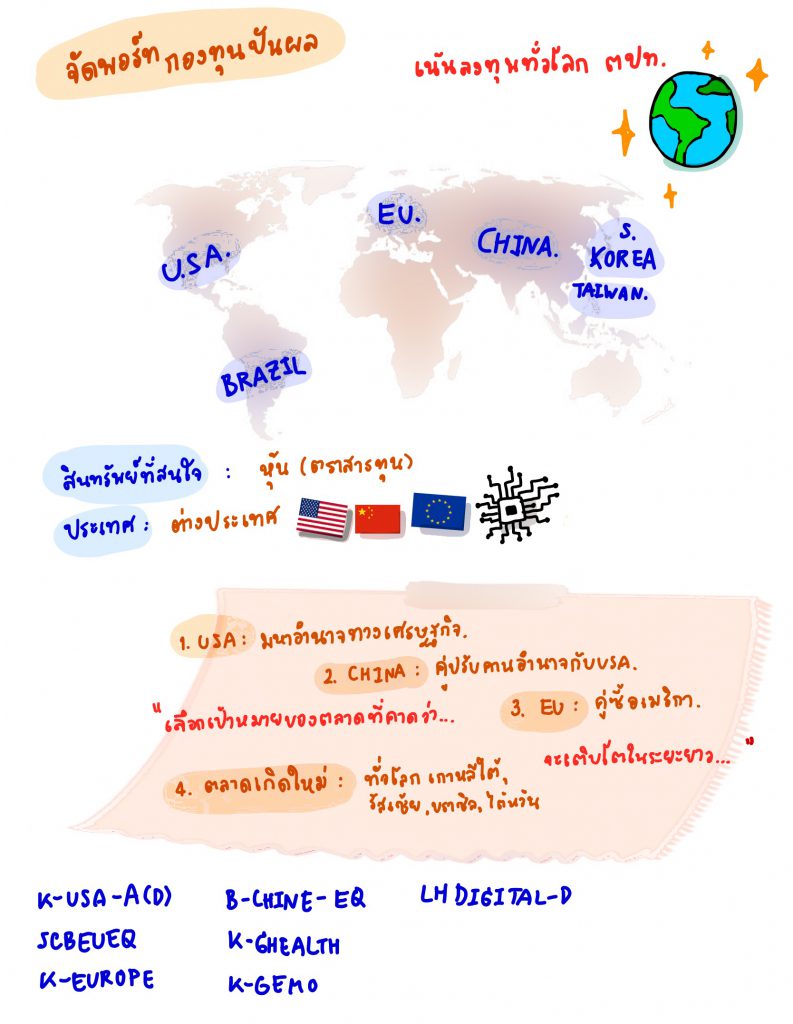 จัดพอร์ท กองทุนปันผล
เน้นลงทุนทั่วโลก ตปท.
EU.
U.S.A.
CHINA.
S.
KOREA
TAIWAN.
BRAZIL
สินทรัพย์ที่สนใจ : หุ้น (ตราสารทุน)
ประเทศ : ต่างประเทศ
1. USA : มหาอำนาจทางเศรษฐกิจ.
2. CHINA : คู่ปรับคานอำนาจกับUSA.
"เลือกเป้าหมายของตลาดที่คาดว่า...
3. EU : คู่ซี้อเมริกา.
จะเติบโตในระยะยาว..."
4. ตลาดเกิดใหม่ : ทั่วโลก เกาหลีใต้,
รัสเซีย, บราซิล, ไต้หวัน
K-USA-A(D) B-CHINE-EQ LHDIGITAL-D
SCBEUEQ K-GHEALTH
K-EUROPE K-GEMO